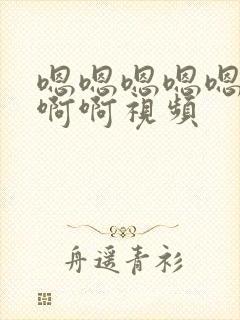 嗯嗯嗯嗯嗯
啊啊視頻
舟遥青衫